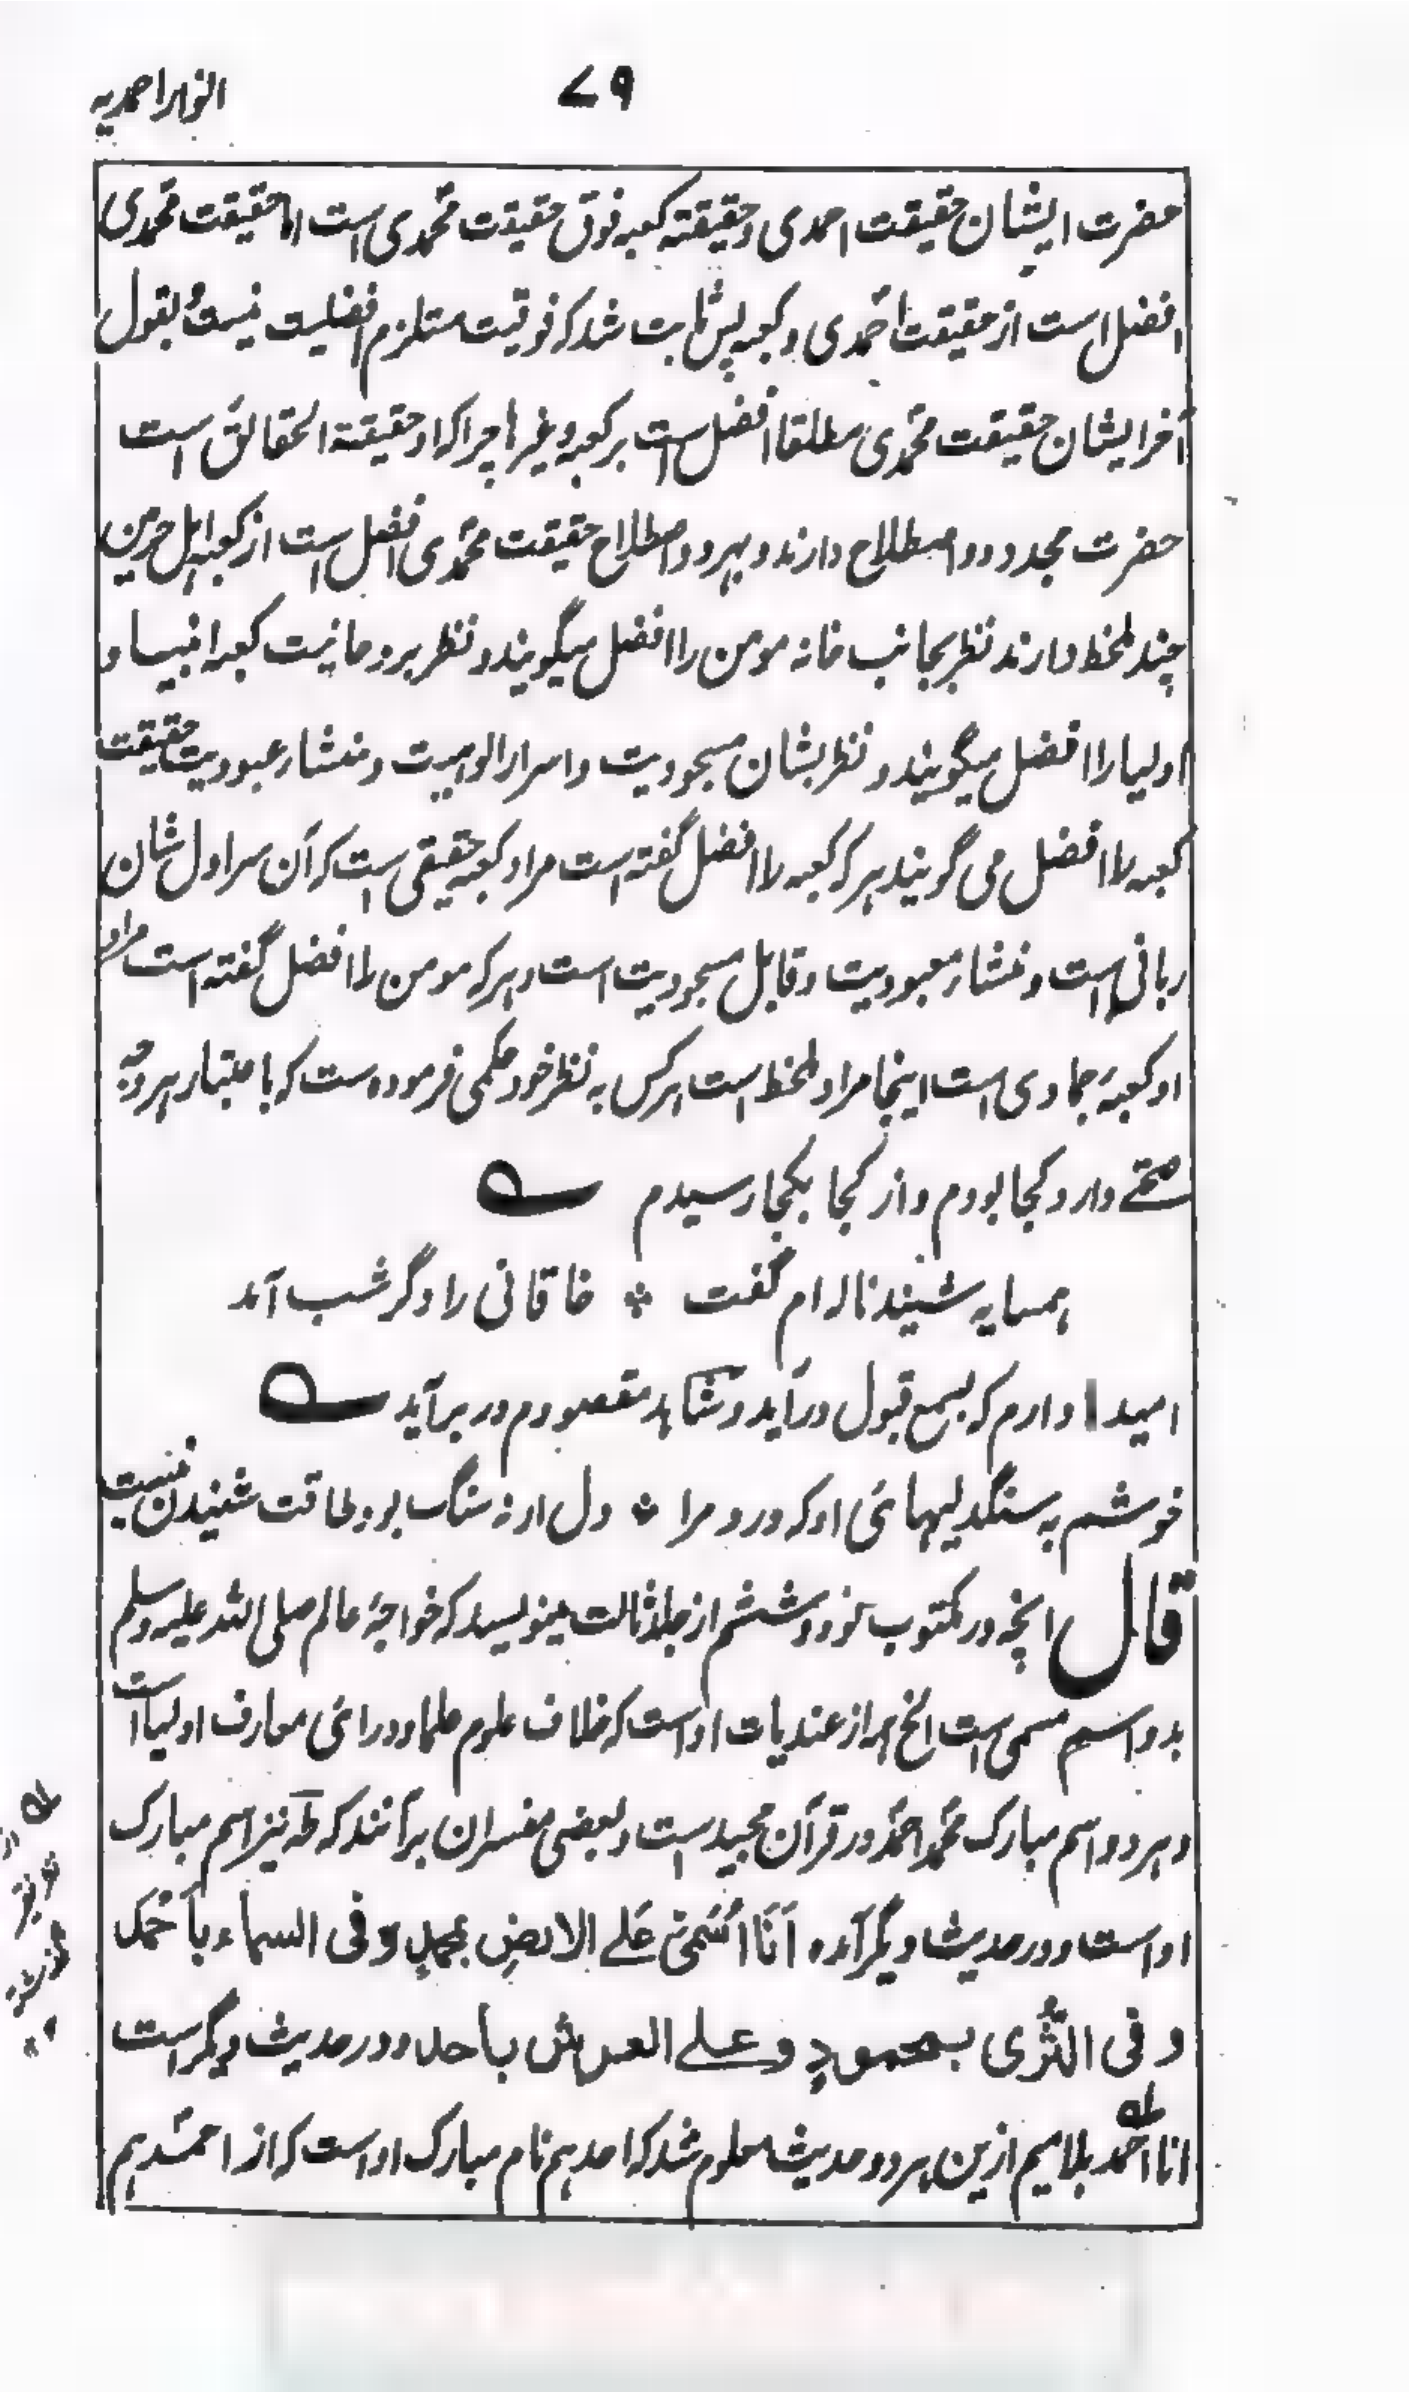 ۷۹
انوار احمدیه
حضرت ایشان حقیقت احمدی و حقیقته کعبه فوق حقیقت محمدی است اما حقیقت محمدی
افضل است از حقیقت احمدی و کعبه پس ثابت شد که فوقیت مستلزم افضلیت نیست و بقول
آخر ایشان حقیقت محمدی مطلقا افضل است بر کعبه و غیرها چراکه او حقیقة الحقائق است
حضرت مجدد دو اصطلاح دارند و بهر دو اصطلاح حقیقت محمدی افضل است از کعبه اہل حرمین
چند لحظ دارند نظر بجانب خانه مومن را افضل میگویند و نظر بروحانیت کعبه انبیا و
اولیا را افضل میگویند و نظر بشان مسجودیت و اسرار الوہیت و منشار عبودیت حقیقت
کعبه را افضل می گویند ہر که کعبه را افضل گفته است مراد کعبه حقیقی است که آن سراول شان
ربانی است و منشار معبودیت و قابل مسجودیت است و ہر که مومن را افضل گفته است مراد
او کعبهٔ جمادی است اینجا مراد لحظ است ہر کس به نظر خود حکمی فرموده ست که باعتبار ہر وجه
صحتے دارد کجا بودم و از کجا بکجا رسیدم
ہمسایه شنید ناله ام گفت * خاقانی را دگر شب آمد
امید دارم که بسمع قبول درآید و شاہد مقصودم در برآید
خوشم به سنگدلیہائی او که درد مرا * دل ار نه سنگ بود طاقت شنیدن نیست
قال انچه در مکتوب نود و ششم از جلد ثالث مینویسد که خواجهٔ عالم صلی اللہ علیه وسلم
بدو اسم مسمی است الخ ہم از عندیات اوست که خلاف علوم علما و ورائی معارف اولیا است
و ہر دو اسم مبارک محمد احمد در قرآن مجید ست و بعضی مفسران برآنند که طه نیز اسم مبارک
اوست و در حدیث دیگر آمده اَنَا اُسَمّیٰ عَلے الارضِ بمحمدٍ وفی السماء باَحمد
و فی الثَّرٰی بمحمودٍ و علے العرش باحد و در حدیث دیگر است
انا احمد بلا میم ازین ہر دو حدیث معلوم شد که احد ہم نام مبارک اوست که از احمد ہم